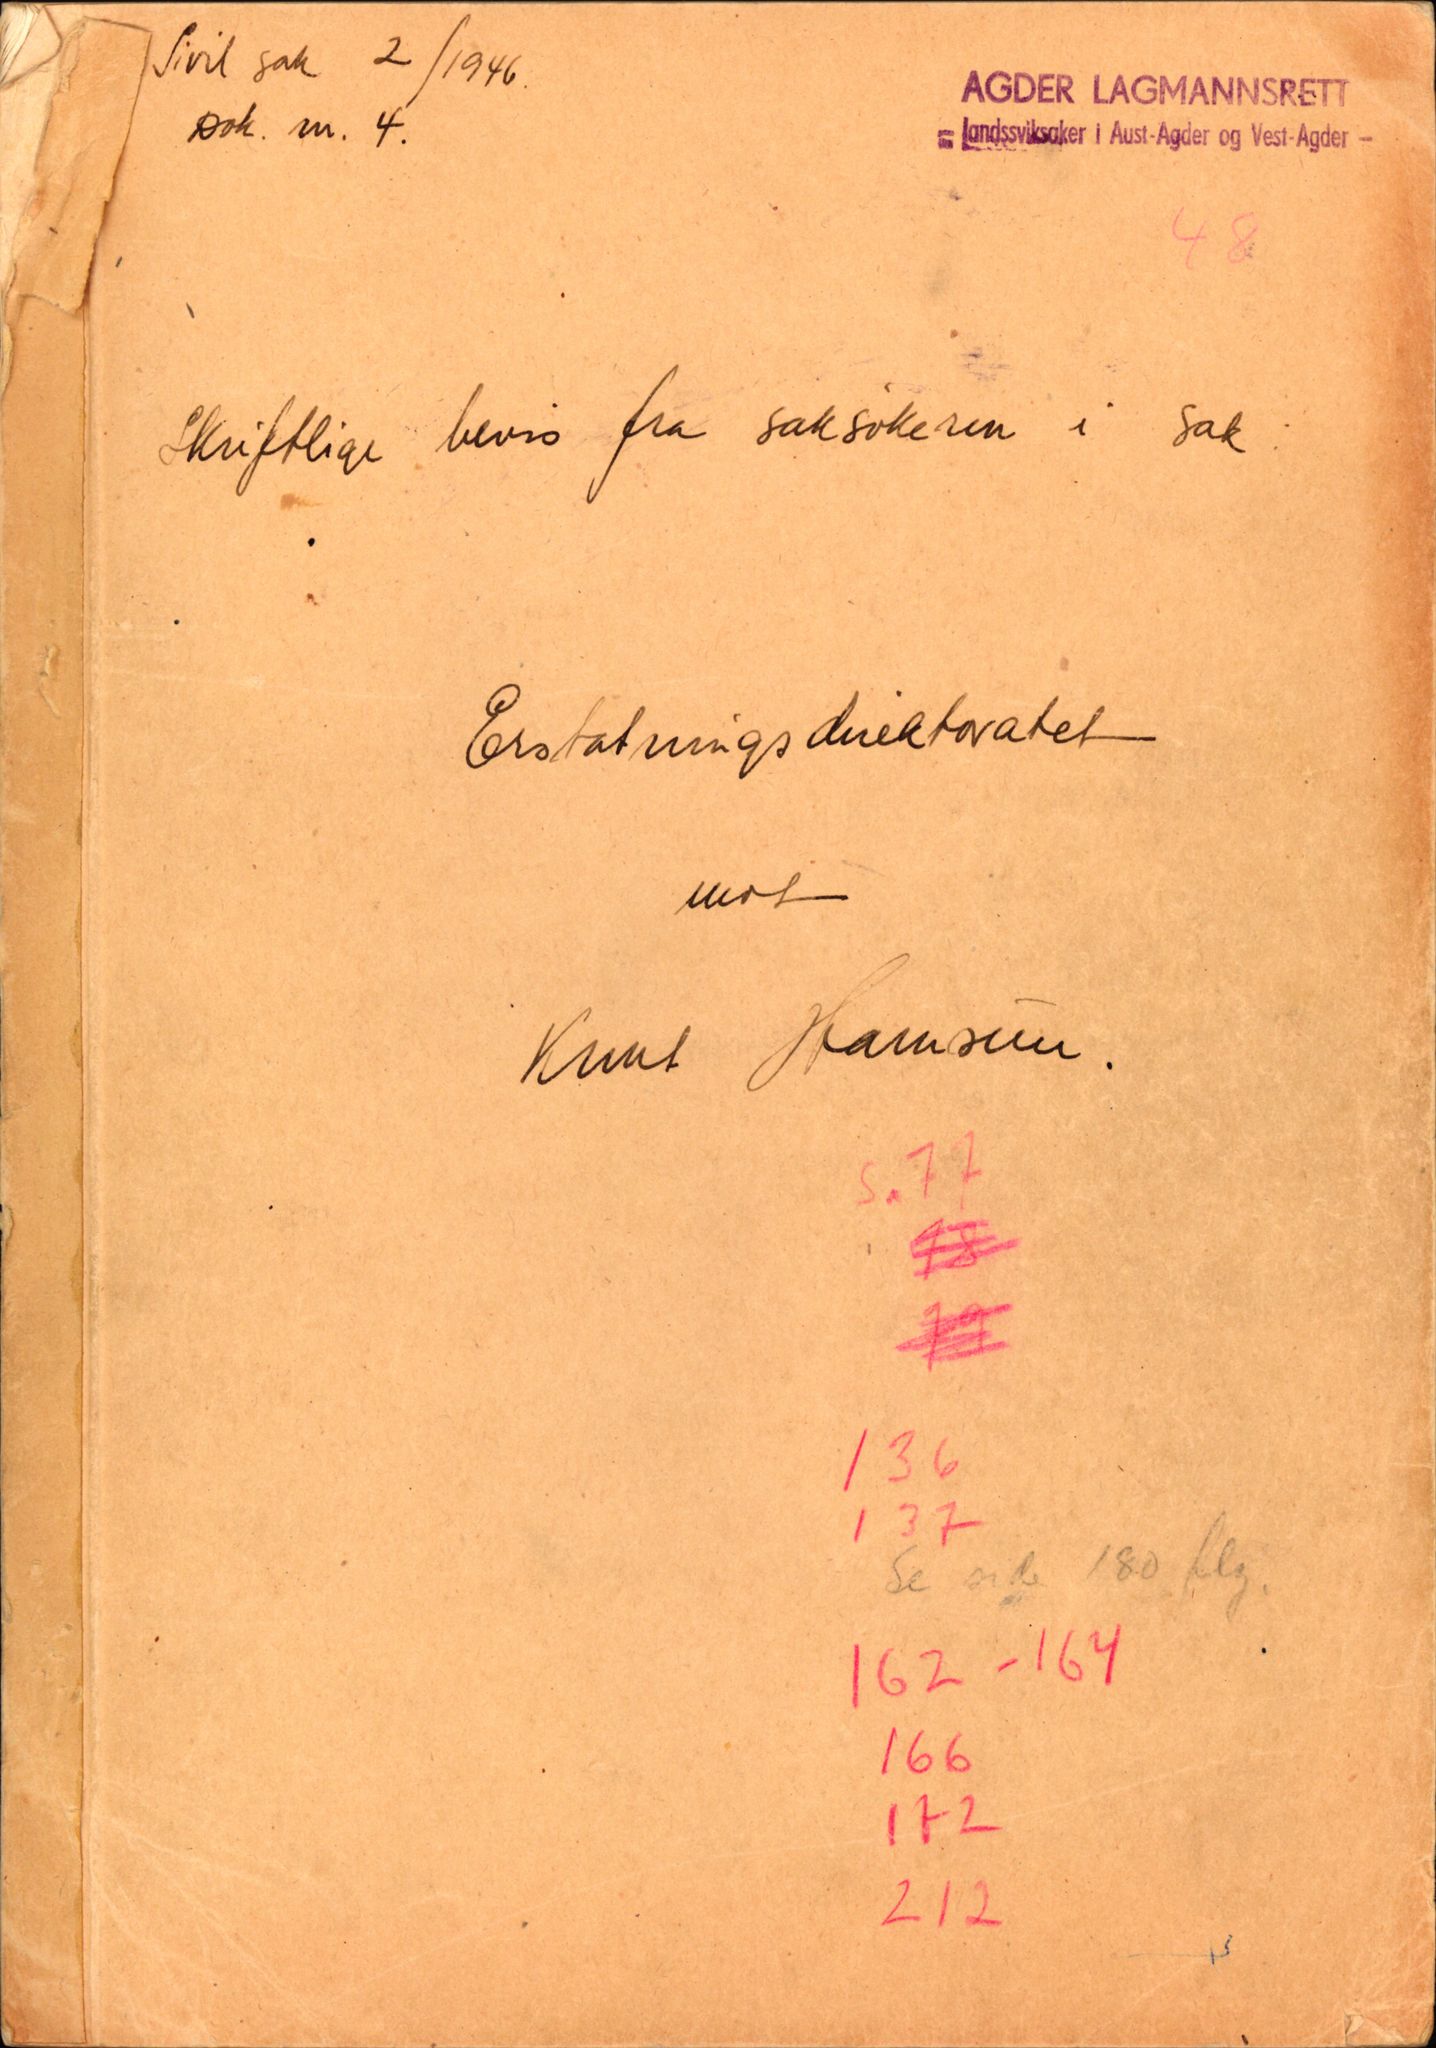 Sivil sak 2/1946.
Dok. nr. 4.
AGDER LAGMANNSRETT
= Landssviksaker i Aust-Agder og Vest-Agder —
48
Skriftlige bevis fra saksökeren i sak:
Erstatningsdirektoratet
mot
Knut Hamsun.
s. 77
78
79
136
137
Se side 180 flg.
162 - 164
166
172
212